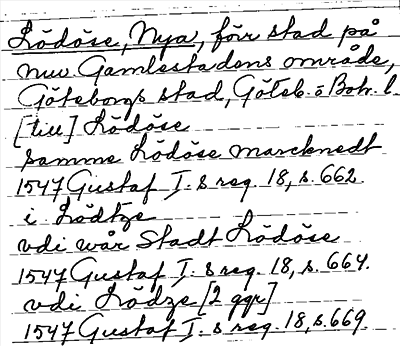 Lödöse, Nya, förr stad på
nuv Gamlestadens område,
Göteborgs stad, Göteb. o Boh. l.
[till] Lödöse
samme Lödöse marcknedt
1547 Gustaf I:s reg. 18, s. 662
i Lödtze
vdi wår Stadt Lödöse
1547 Gustaf I:s reg. 18, s. 664.
vdi Lödze [2 ggr]
1547 Gustaf I:s reg. 18, s. 669.